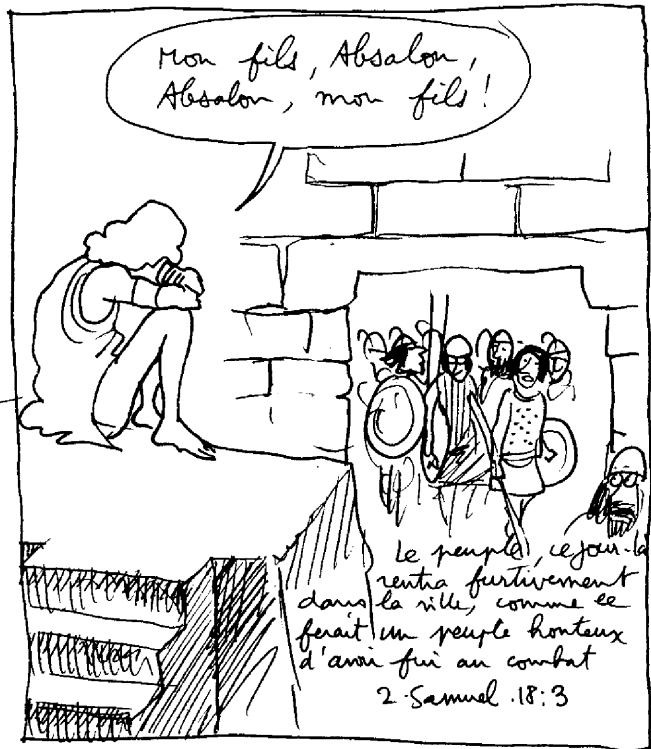 Mon fils, Absalon,
Absalon, mon fils !
Le peuple, ce jour-là
rentra furtivement
dans la ville, comme le
ferait un peuple honteux
d'avoir fui au combat
2.Samuel.18:3